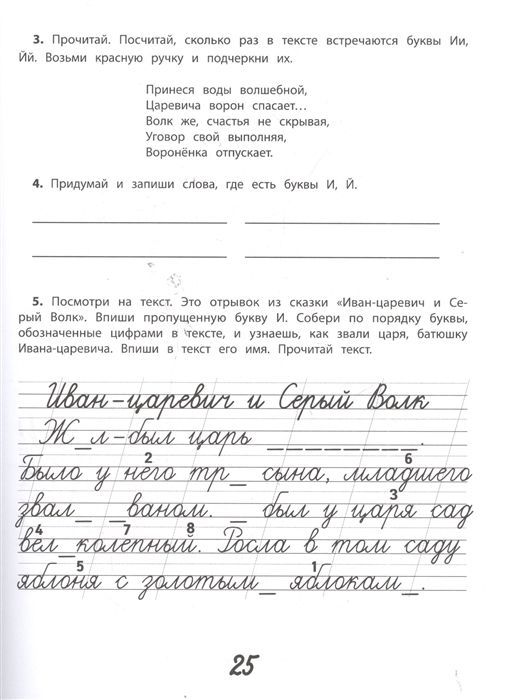 3. Прочитай. Посчитай, сколько раз в тексте встречаются буквы Ии,
Йй. Возьми красную ручку и подчеркни их.
Принеся воды волшебной,
Царевича ворон спасает...
Волк же, счастья не скрывая,
Уговор свой выполняя,
Воронёнка отпускает.
4. Придумай и запиши слова, где есть буквы И, Й.
5. Посмотри на текст. Это отрывок из сказки «Иван-царевич и Се-
рый Волк». Впиши пропущенную букву И. Собери по порядку буквы,
обозначенные цифрами в тексте, и узнаешь, как звали царя, батюшку
Ивана-царевича. Впиши в текст его имя. Прочитай текст.
Иван-царевич и Серый Волк
Ж_л-был царь ________.
2 6
Было у него тр_ сына, младшего
3
звал_ _ваном. _ был у царя сад
4 7 8
вел_колепный. Росла в том саду
5 1
яблоня с золотым_ яблокам_.
25